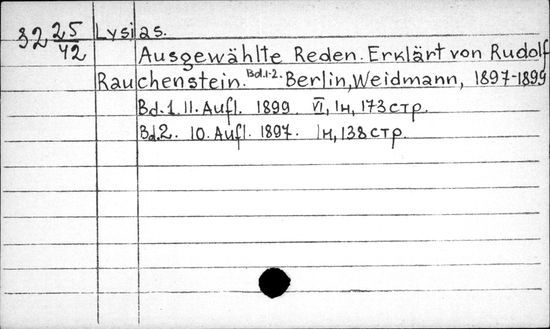 32 25/42 Lysias.
Ausgewählte Reden. Erklärt von Rudolf
Rauchenstein. Bd.1-2. Berlin, Weidmann, 1897-1899
Bd. 1. 11. Aufl. 1899. VI, 1н, 173 стр.
Bd. 2. 10. Aufl. 1897. 1н, 138 стр.